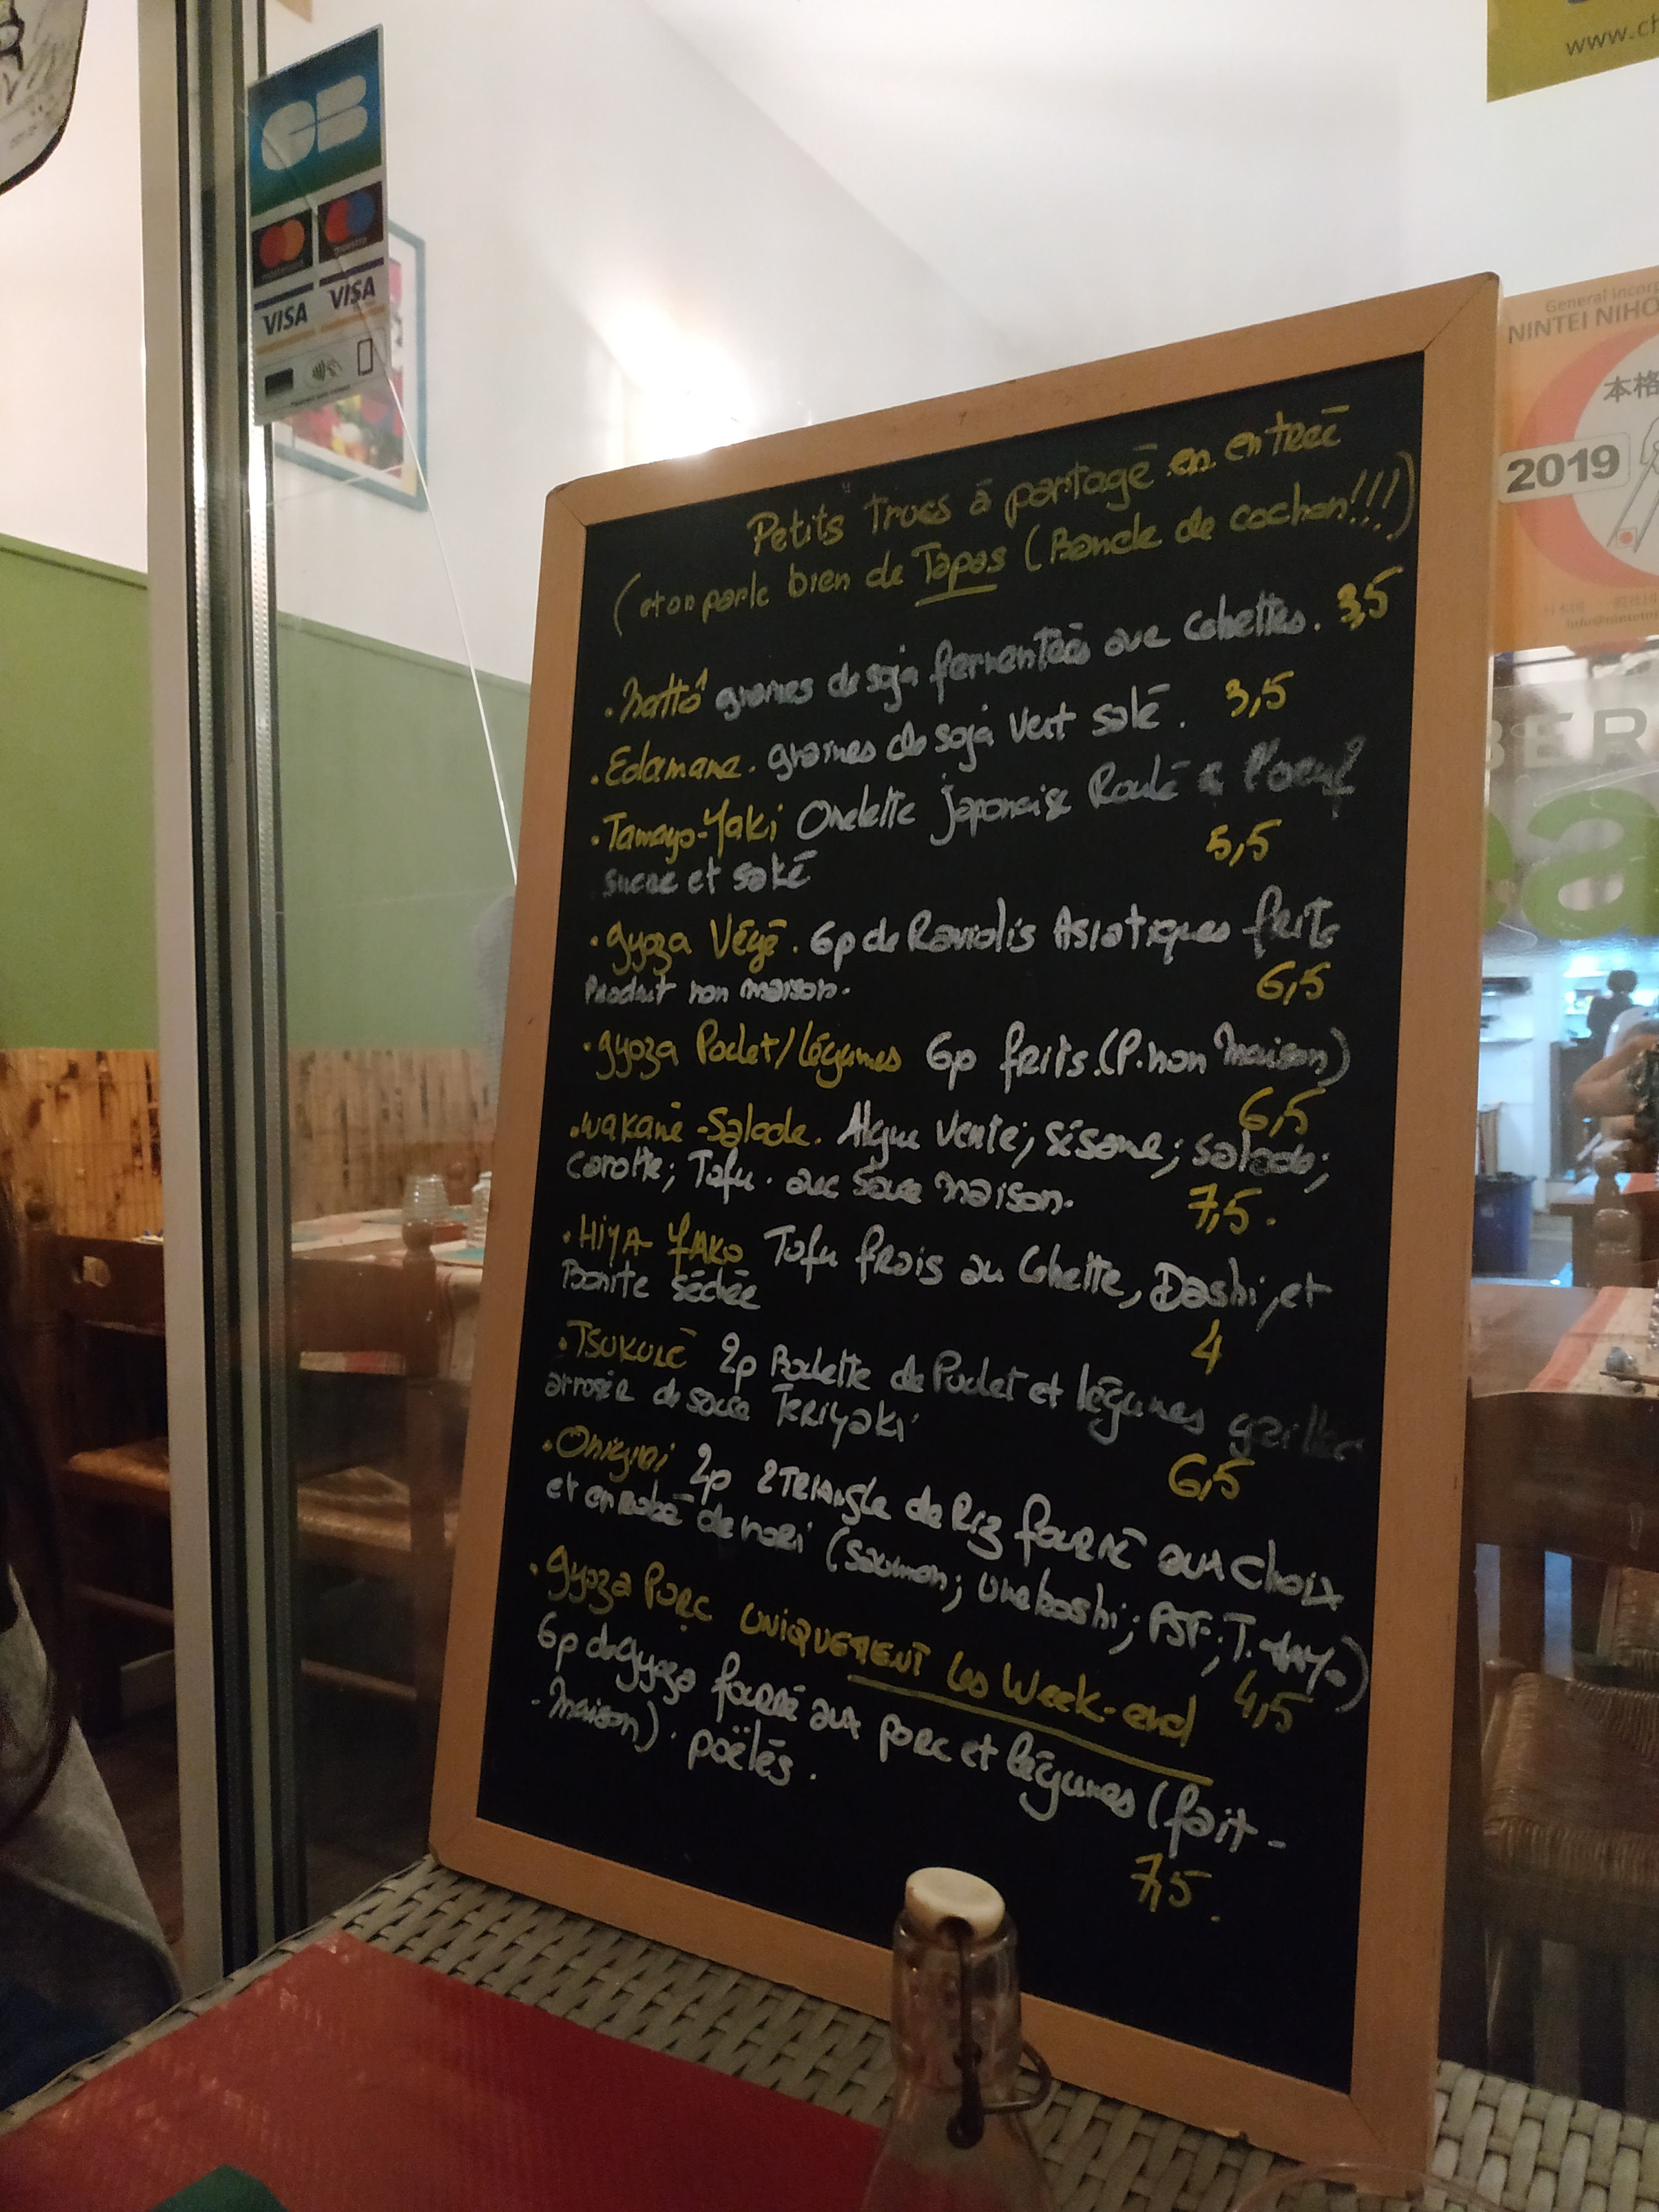 CB
mastercard
maestro
VISA
VISA
www.ch
General Incorp
NINTEI NIHO
本格
2019
BER
Petits Trucs à partagé en entreé
(et on parle bien de Tapas (Bande de cochon!!!)
. Nattô graines de soja fermentées avec Ciboettes. 3,5
. Edamame. graines de soja Vert salé. 3,5
. Tamago-Yaki Omelette japonaise Roulé à l'oeuf
sucre et saké 5,5
. gyoza Végé. 6p de Raviolis Asiatiques frits
Produit non maison. 6,5
. gyoza Poulet/légumes 6p frits. (P. non maison)
6,5
. wakamé-Salade. Algue Verte; Sésame; salade;
carotte; Tofu. avec Sauce maison. 7,5.
. HiyA YAKo Tofu frais au Cibette, Dashi, et
Bonite séchée 4
. TSUKUNÉ 2p Boulette de Poulet et légumes grillée
arrosée de sauce Teriyaki 6,5
. Onigiri 2p 2 TRIANgle de Riz fourré aux choix
et enrobé de nori (Saumon; Umeboshi; PST; T. mayo)
4,5
. gyoza Porc UNiQUEMENT les Week-end
6p de gyoza fourré aux porc et légumes (fait-
-maison). poëlés. 7,5.